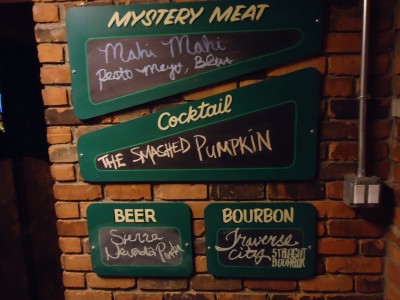 MYSTERY MEAT
Mahi Mahi
Pesto Mayo,
Cocktail
THE SMASHED PUMPKIN
BEER
Sierra
Nevada
BOURBON
Traverse
City STRAIGHT
BOURBON